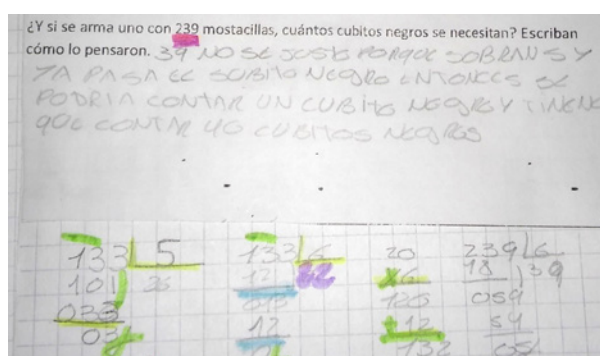 ¿Y si se arma uno con 239 mostacillas, cuántos cubitos negros se necesitan? Escriban
cómo lo pensaron. 39 NO SE JUSTO PORQUE SOBRAN 5 Y
YA PASA EL CUBITO NEGRO ENTONCES SE
PODRIA CONTAR UN CUBITO NEGRO Y TIENEN
QUE CONTAR 40 CUBITOS NEGROS
133 5 133 6 20 239 6
101 12 22 x6 18 39
033 013 120 059
03 12 +12 54
0 132 05